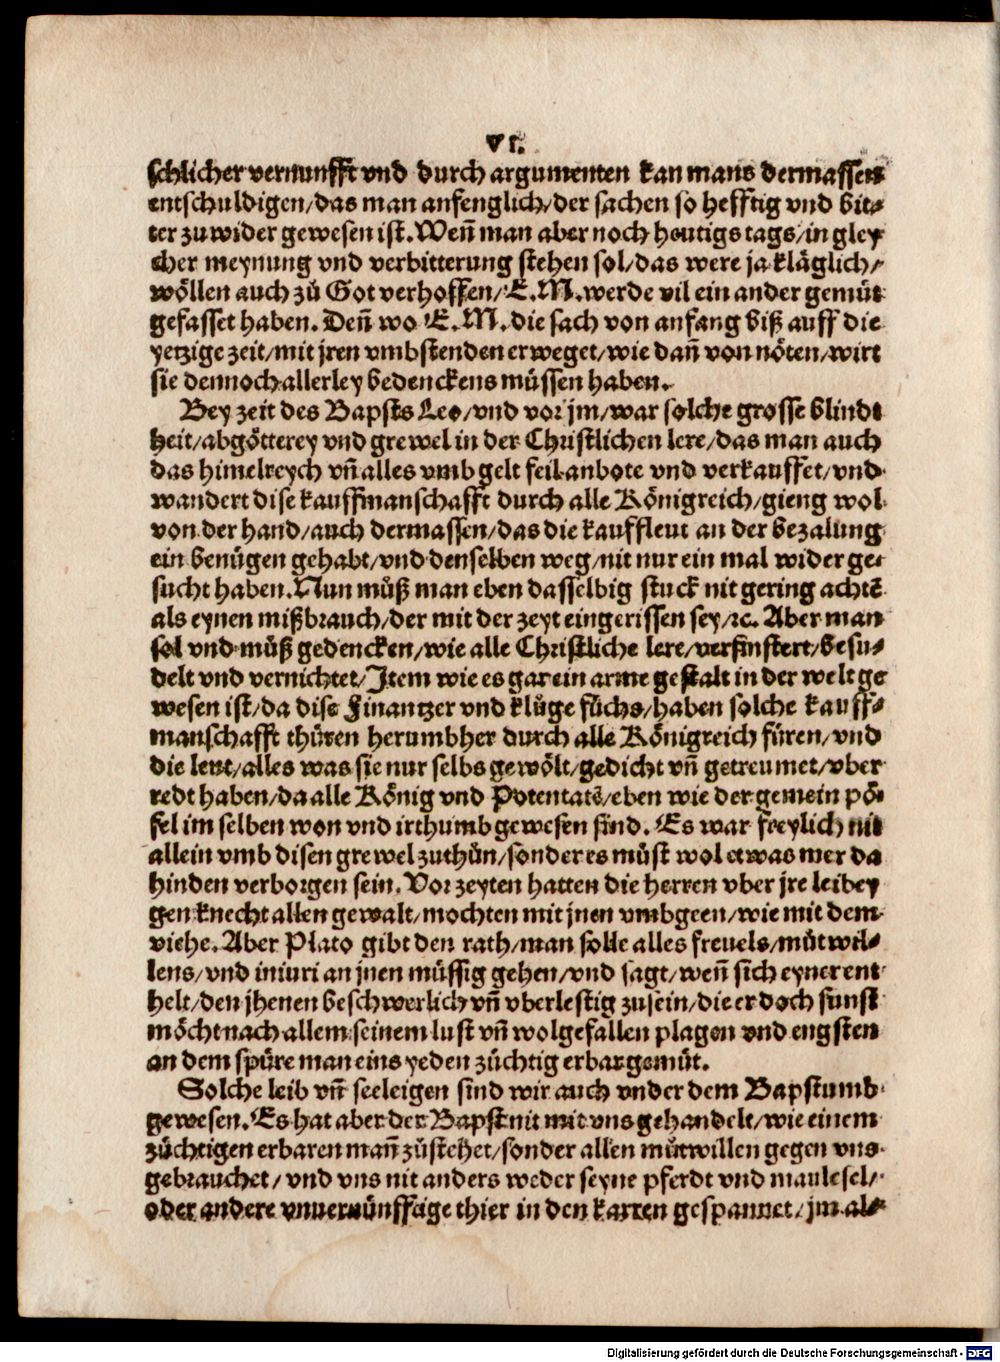 VI.
schlicher vernunfft vnd durch argumenten kan mans dermassen
entschuldigen/das man anfenglich/der sachen so hefftig vnd bit-
ter zuwider gewesen ist. Weñ man aber noch heutigs tags/in gley
cher meynung vnd verbitterung stehen sol/das were ja kläglich/
wöllen auch zů Got verhoffen/E.M.werde vil ein ander gemüt
gefasset haben. Deñ wo E.M.die sach von anfang biß auff die
yetzige zeit/mit jren vmbstenden erweget/wie dañ von nöten/wirt
sie dennoch allerley bedenckens müssen haben.
Bey zeit des Bapsts Leo/vnd vor jm/war solche grosse blindt
heit/abgötterey vnd grewel in der Christlichen lere/das man auch
das himelreych vñ alles vmb gelt feil anbote vnd verkauffet/vnd
wandert dise kauffmanschafft durch alle Königreich/gieng wol
von der hand/auch dermassen/das die kauffleut an der bezalung
ein benügen gehabt/vnd denselben weg/nit nur ein mal wider ge-
sucht haben. Nun můß man eben dasselbig stuck nit gering achtē
als eynen mißbrauch/der mit der zeyt eingerissen sey/ꝛc. Aber man
sol vnd můß gedencken/wie alle Christliche lere/verfinstert/besu-
delt vnd vernichtet/Item wie es gar ein arme gestalt in der welt ge
wesen ist/da dise Finantzer vnd klůge füchs/haben solche kauff-
manschafft thüren herumbher durch alle Königreich füren/vnd
die leut/alles was sie nur selbs gewölt/gedicht vñ getreumet/vber
redt haben/da alle König vnd Potentatē/eben wie der gemein pö-
fel im selben won vnd irthumb gewesen sind. Es war freylich nit
allein vmb disen grewel zuthůn/sonder es můst wol etwas mer da
hinden verborgen sein. Vor zeyten hatten die herren vber jre leibey
gen knecht allen gewalt/mochten mit jnen vmbgeen/wie mit dem
viehe. Aber Plato gibt den rath/man solle alles freuels/můtwil-
lens/vnd iniuri an jnen müssig gehen/vnd sagt/weñ sich eyner ent
helt/den jhenen beschwerlich vñ vberlestig zusein/die er doch sunst
möcht nach allem seinem lust vñ wolgefallen plagen vnd engsten
an dem spüre man eins yeden züchtig erbar gemüt.
Solche leib vñ seeleigen sind wir auch vnder dem Bapstumb
gewesen. Es hat aber der Bapst nit mit vns gehandelt/wie einem
züchtigen erbaren mañ zůstehet/sonder allen můtwillen gegen vns
gebrauchet/ vnd vns nit anders weder seyne pferdt vnd maulesel/
oder andere vnuernünfftige thier in den karren gespannet/jm al-
Digitalisierung gefördert durch die Deutsche Forschungsgemeinschaft - DFG